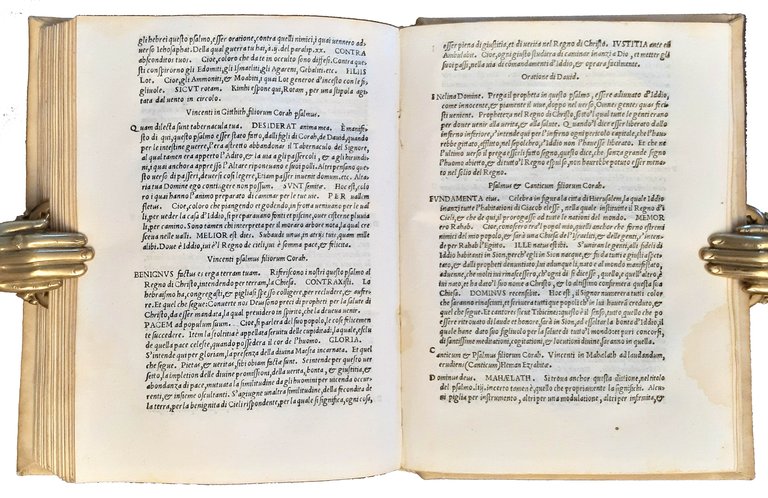 gli hebrei questo psalmo, esser oratione, contra quelli nimici, i quai uennero ad-
uerso Iehosaphat. Della qual guerra tu hai, a .ij. del paralip. xx. CONTRA
absconditos tuos. Cioe, coloro che da te in occulto sono diffesi. Contra que
sti conspirorno gli Edomiti, gli Ismaeliti, gli Agareni, Gebaliti, etc. FILIIS
Lot. Cioe, gli Ammoniti, & Moabiti, i quai Lot generoe d'incesto con le fi-
gliuole. SICVT rotam. Kimhi espone qui, Rotam, per una stipola agi-
tata dal uento in circolo.
Vincenti in Githith filiorum Corah psalmus.
Quam dilecta sunt tabernacula tua. DESIDERAT anima mea. È manife-
sto di qui, questo psalmo esser stato, dalli figli di Corah, de Dauid, quando
per le intestine guerre, l'era astretto abbandonar il Tabernacolo del Signore,
al qual tanto era appetto l'Adito, & la uia a gli passercoli, & a gli hirundi-
ni, i quai anchora appresso l'Altare riponeuano i suoi polli. Altri pensano que
sto uerso di passere, douersi così legere, Etiam passer inuenit domum, etc. Alta-
ria tua Domine ego contigere non possum. SVNT semitæ. Hoc est, colo
ro i quai hanno l'animo preparato di caminar per le tue uie. PER uallem
fletus. Cioe, coloro che piangendo et godendo, in fretta uerranno per le ual
li, per ueder la casa d'Iddio, si prepareranno fonti et piscine, ouer cisterne pluuia
li, per camino. Sono tamen chi interpreta per il moraro albero, qual nasce, o cre
sceua nelle ualli. MELIOR est dies. Subaudi unus, in atrijs tuis, quam mille
alibi. Doue è Iddio, iui è'l Regno de cieli, iui è somma pace, & felicita.
Vincenti psalmus filiorum Corah.
BENIGNVS factus es erga terram tuam. Riferiscono i nostri questo psalmo al
Regno di Christo, intendendo per terram, la Chiesa. CONTRAXISTI. La
hebraismo ha, congregasti, et pigliasi esse colligere, per recludere, & aufrire-
re. Et quel che segue: Conuerte nos Deus sono preci di propheti per la salute di
Christo, da esser mandata, la qual preuidero in spirito, che la deueua uenir.
PACEM ad populum suum. Cioe, si parlera del suo popolo, le cose felicemen
te succedere. Item la scioltitiae appellata seruitu delle cupidità di, la quale, esclu
de quella pace celeste, quando possedera il cor de l'huomo. GLORIA.
S'intende qui per gloriam, la presentia della diuina Maesta incarnata. Et quel
che segue. Pietas, & ueritas, sibi obiuiam facta sunt. Se intende per questo uer
setto, la impletion delle diuine promissioni, della uerita, bonta, & giustitia, &
abondanza di pace, mutuata la similitudine da gli huomini per uicenda occur-
renti, & insieme osculanti. S'agiugne un'altra similitudine, della fecondita de
la terra, per la benignita di Cieli rispondente, per la quale si significa, ogni cosa,
esser piena di giustitia, et di uerita nel Regno di Christo. IVSTITIA ante eū
Ambulabit. Cioe, ogni giusto studiera di caminar inanzi a Dio, et mettere gli
suoi passi, nella uia di comandamenti d'Iddio, & operara facilmente.
Oratione di Dauid.
Inclina Domine. Prega il propheta in questo psalmo, essere adiutato d'Iddio,
come innocente, & piamente il uiue, doppo nel uerso, Omnes gentes quas feci
sti uenient. Propheteza nel Regno di Christo, sotto'l qual tutte le genti erano
per douer uenir alla uerita, & alla salute. Quando l'dice esser liberato dallo
inferno inferiore, s'intende qui per l'inferno ogni pericolo capitale, che l'hau-
rebbe gittato, afflitto, nel sepolcro, se Iddio non l'hauesse liberato. Et che
ne l'ultimo uerso il prega essergli fatto segno, questo dice, che senza grande segno
l'huomo abietto, & di niun Regno essendo, non haurebbe potuto esser menato
nel solio del Regno.
Psalmus & Canticum filiorum Corah.
FVNDAMENTA eius. Celebra in figura la citta di Hierusalem, la quale Iddio
inanzi tutte l'habitationi di Giacob elesse, nella quale instituire il Regno di
Cieli, & che de qui, il propagasso ad tutte le nations del mondo. MEMOR
ero Rahab. Cioe, metterò nel mio popolo, quelli anchor che forno estremi
nimici del mio popolo, accio che una sarà la Chiesa de l'Israele, & delle genti, in-
tende per Rahab l'Egitto. ILLE natus est ibi. S'ammiran le genti, alle fideli di
Iddio habitanti in Sion, perch'egli in Sion nacque, & tu di giustitia aspetta-
to, & dalli propheti denuntiato, lui adunque, quando al mondo sia manifesto,
aduenne, che molti rinascesssero, i nascesse, ch'ogn di si dicesse, quello, & quell'altro, è
iui nato, et cha da quel Regno crescerà, & lo altissimo confirmara questa sua
Chiesa. DOMINVS recensebit. Hoc est, il Signor numererà tutti coloro
che saranno rinasciuti, et scriuera tutto quel popolo, ch'in lui haura creduto, &
quel che segue. Et cantores sicut Tibicine: questo è il senso, tutto quello che po
esser ritrouato di laude et honore, sarà in Sion, ad essaltar la bonta d'Iddio, il
quale hauer dato suo figliuolo per la salute di tutto il mondo, & tutti pensarà, di
di santissime meditationi, cogitationi, & locutioni diuine, sacrando in quella.
Canticum & Psalmus filiorum Corah. Vincenti in Mahelath ad laudandum,
eruditio Heman Ezrahitæ.
Dominus deus. MAHELATH. Si troua anchor questa dittione, nel titolo
del psalmo .liij. incerto tamen è, quello che propriamente la significhi. Alcuni
piglia per instrumento, altri per una modulatione, altri per infirmita, &